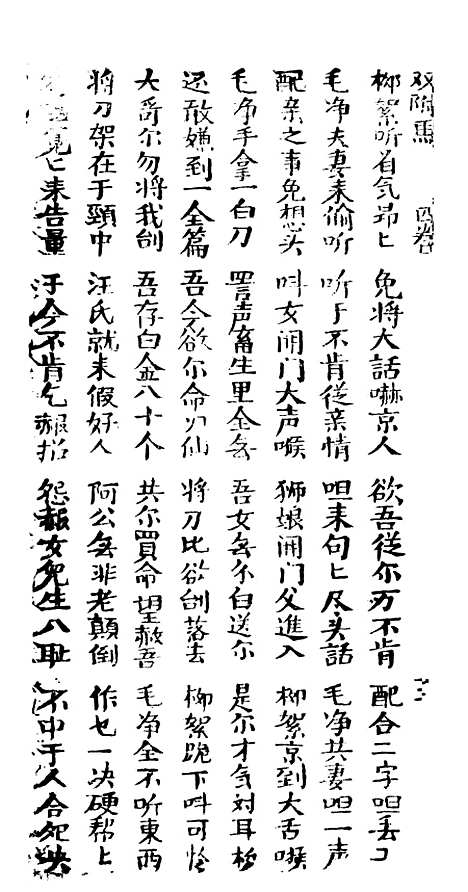 双附馬 四卷
柳絮听着气昂匕 免将大話嚇京人 欲吾從尔万不肯 配合二字呾丢口
毛净夫妻来偷听 听于不肯從亲情 呾来句匕尽头話 毛净共妻呾一声
配亲之事免想头 呌女開门大声喉 狮娘開门父進入 柳絮京到大舌喉
毛净手拿一白刀 詈声畜生里全無 吾女無尔白送尔 是尔才气对耳
还敢嫌到一全篇 吾今欲尔命力仙 将刀比欲刣落去 柳絮跪下呌可怜
大哥尔勿将我刣 吾存白金八十个 共尔買命望赦吾 毛净全不听東西
将刀架在于頸中 汪氏就来假好人 阿公無非老顛倒 作乜一决硬帮匕
冤匕来告量 汙今不肯乞赧招 怨赧女兒生八耻 不中于人合